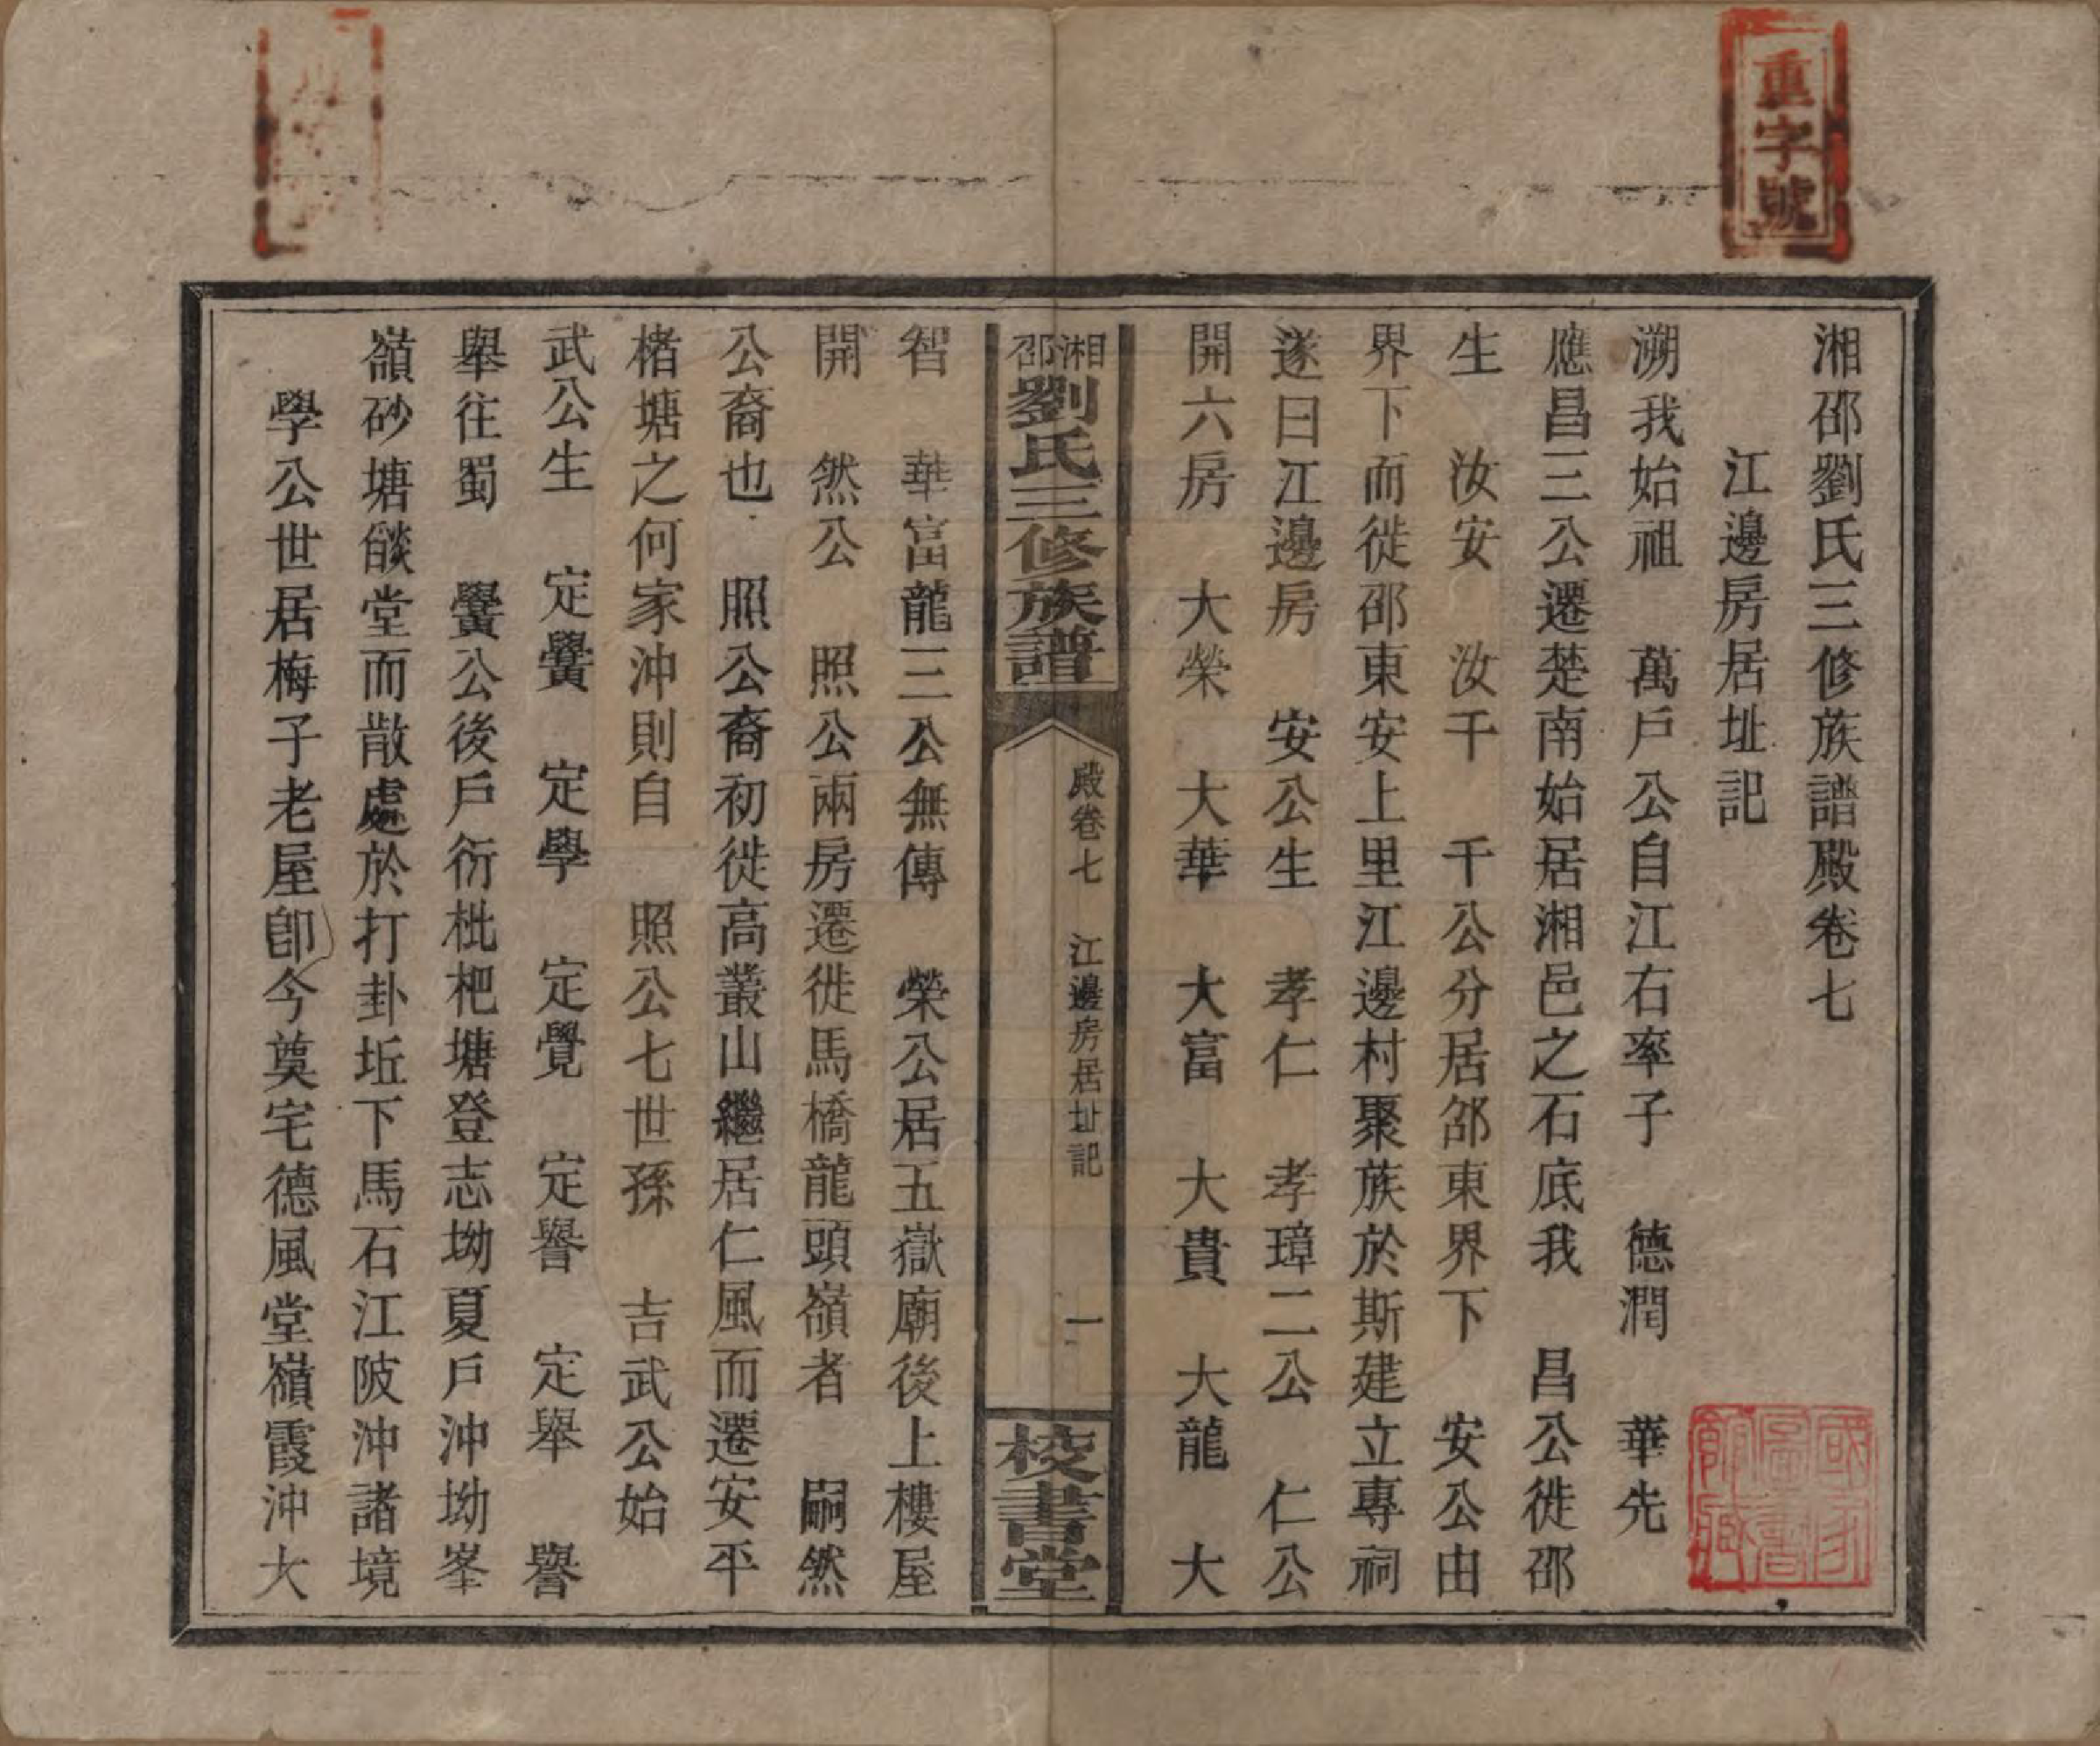 重字號
湘邵劉氏三修族譜殿卷七
江邊房居址記
溯我始祖　萬戶公自江右率子　德潤　華先
應昌三公遷楚南始居湘邑之石底我　昌公徙邵
生　汝安　汝千　千公分居邵東界下　安公由
界下而徙邵東安上里江邊村聚族於斯建立專祠
遂曰江邊房　安公生　孝仁　孝璋二公　仁公
開六房　大榮　大華　大富　大貴　大龍　大
湘邵劉氏三修族譜
殿卷七　江邊房居址記　一
校書堂
智　華富龍三公無傳　榮公居五嶽廟後上樓屋
開　然公　照公兩房遷徙馬橋龍頭嶺者　嗣然
公裔也　照公裔初徙高叢山繼居仁風而遷安平
楮塘之何家沖則自　照公七世孫　吉武公始
武公生　定黌　定學　定覺　定譽　定舉　譽
舉往蜀　黌公後戶衍枇杷塘登志坳夏戶沖坳峯
嶺砂塘餤堂而散處於打卦坵下馬石江陂沖諸境
學公世居梅子老屋卽今奠宅德風堂嶺霞沖大
國家圖書館藏